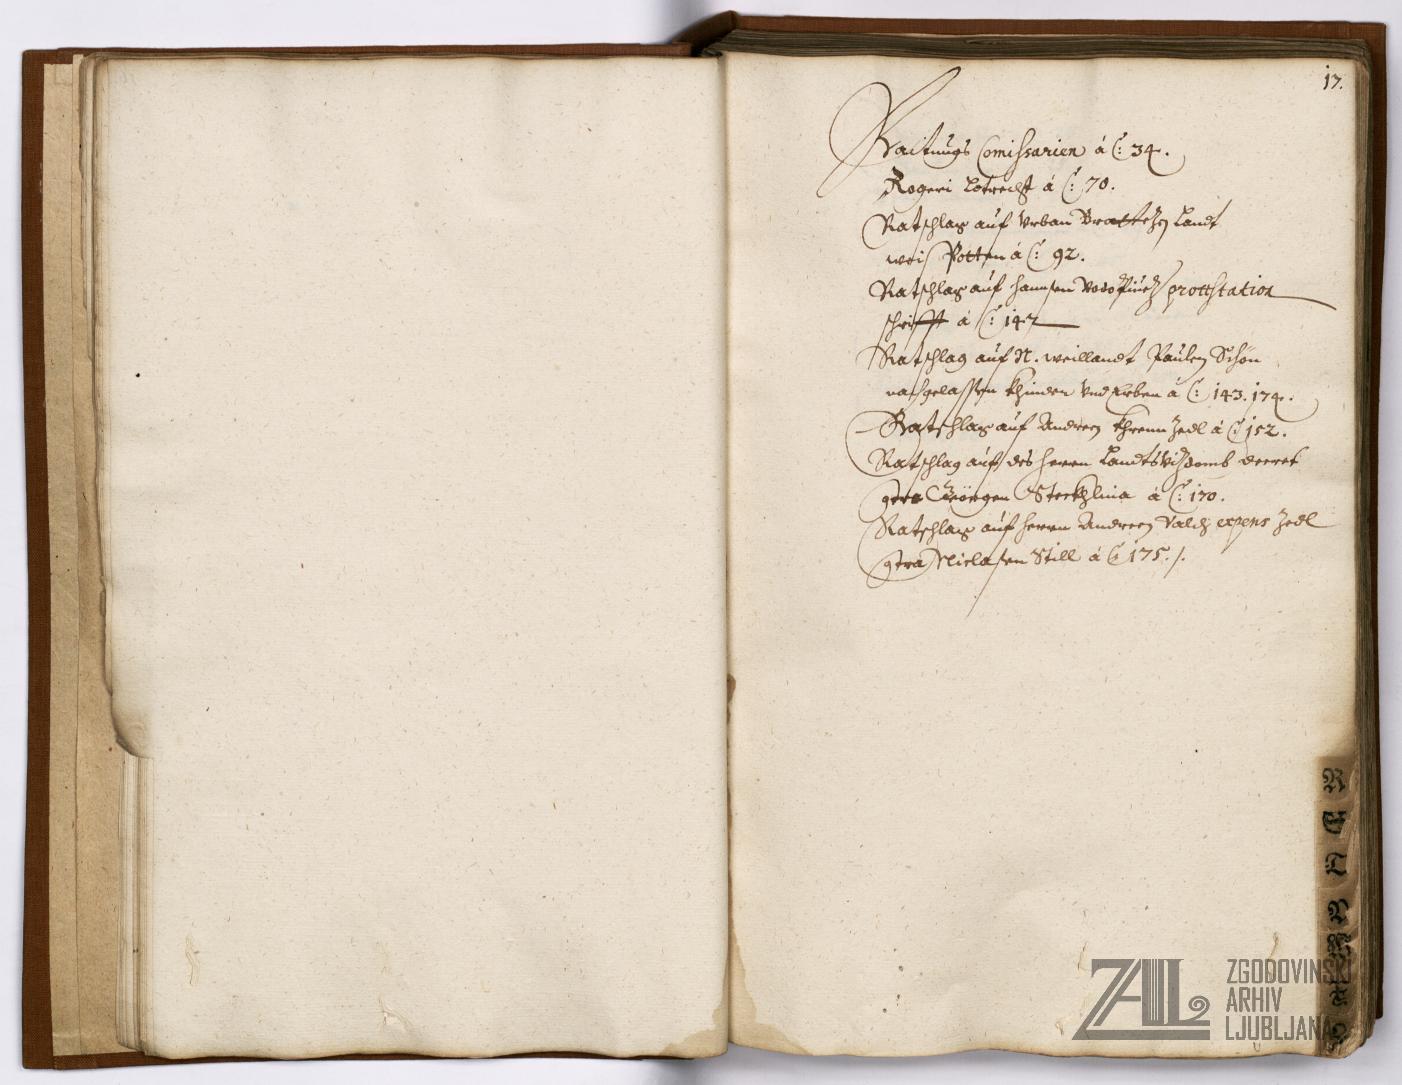 17.
Raitungs Comissarien á C: 34.
Rogeri Lotrecht á C: 70.
Ratschlag auf Urban Landt
Potten á C: 92.
Ratschlag auf Hannsen prottstation
schrifft á C: 147
Ratschlag auf N. weillandt Paulen Schön
nachgelassen khinder Und Erben á C: 143. 174.
Ratschlag auf Andreen Khrenn Zedl á C: 152.
Ratschlag auf des herrn Landtsvizdomb decret
gtra Geörgen á C: 170.
Ratschlag auf herrn Andreen expens Zedl
gtra Niclasen Still á C: 175. /.
R
S
T
V
ZAL ZGODOVINSKI
ARHIV
LJUBLJANA